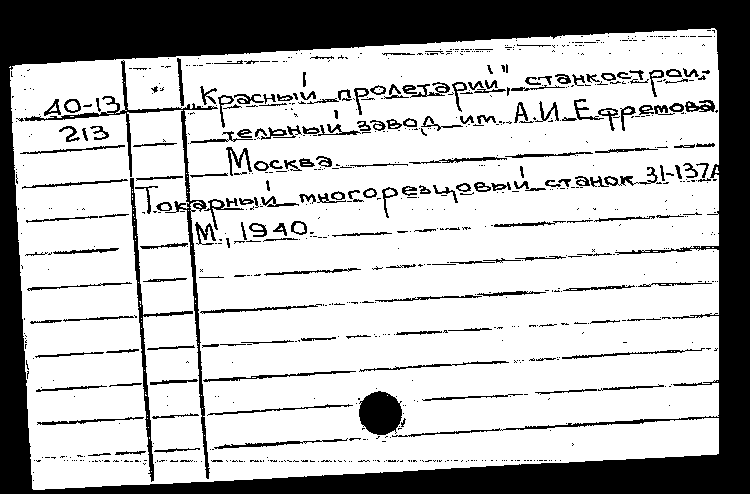 40-13 „Красный пролетарий", станкострои-
213 тельный завод им. А.И. Ефремова.
Москва.
Токарный многорезцовый станок 31-137А
М., 1940.